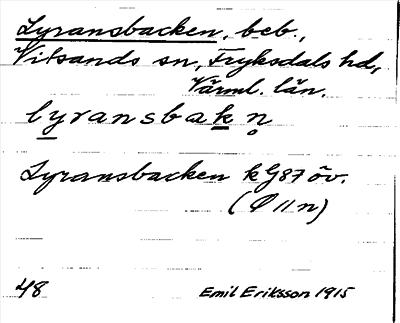 Lyransbacken, beb.,
Vitsands sn, Fryksdals hd,
Värml. län.
lyransbakn̥
Lyransbacken kG87 öv.
(Ø 11 n)
48 Emil Eriksson 1915